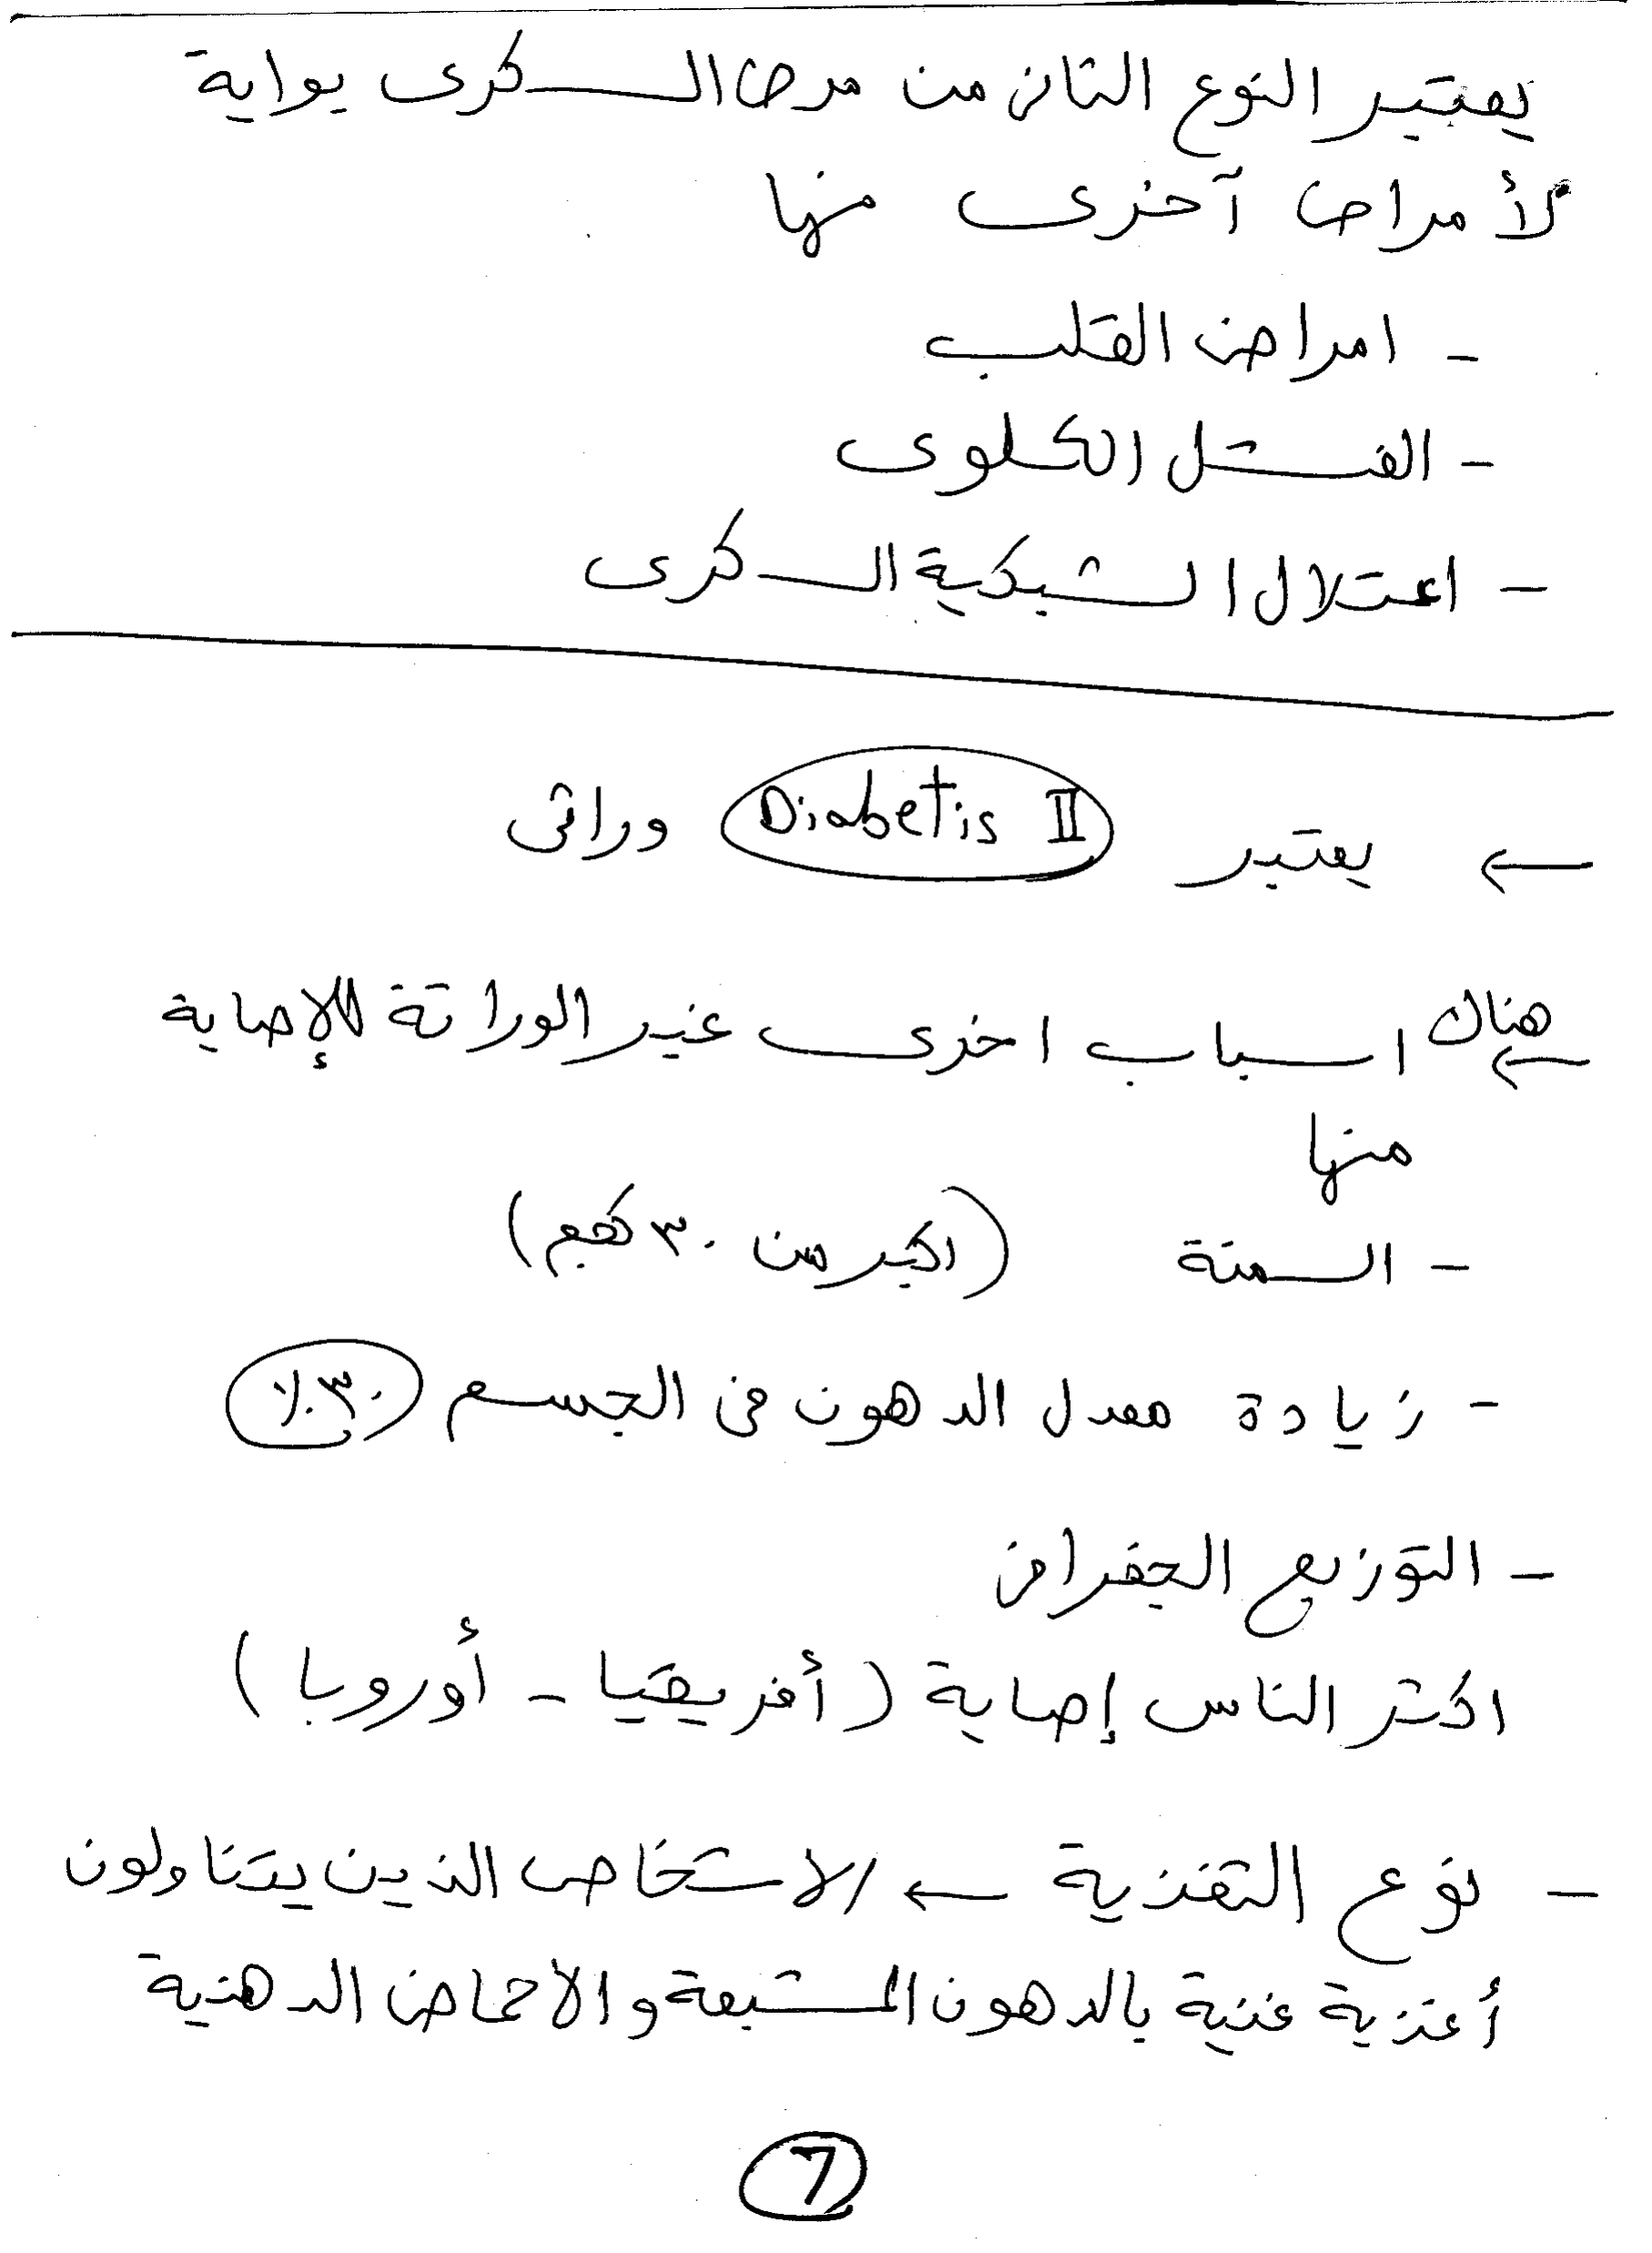 يعتبر النوع الثانى من مرض السكرى بوابة
لأمراض آخرى منها
- امراض القلب
- الفشل الكلوى
- اعتلال الشبكية السكرى
← يعتبر Diabetis II وراثى
← هناك اسباب اخرى غير الوراثة للإصابة
منها
- السمنة (اكبر من ٣٠ كجم)
- زيادة معدل الدهون فى الجسم ٣٠٪
- التوزيع الجغرافى
اكثر الناس إصابة (أفريقيا - أوروبا)
- نوع التغذية ← الاشخاص الذين يتناولون
أغذية غنية بالدهون المشبعة والاحماض الدهنية
7